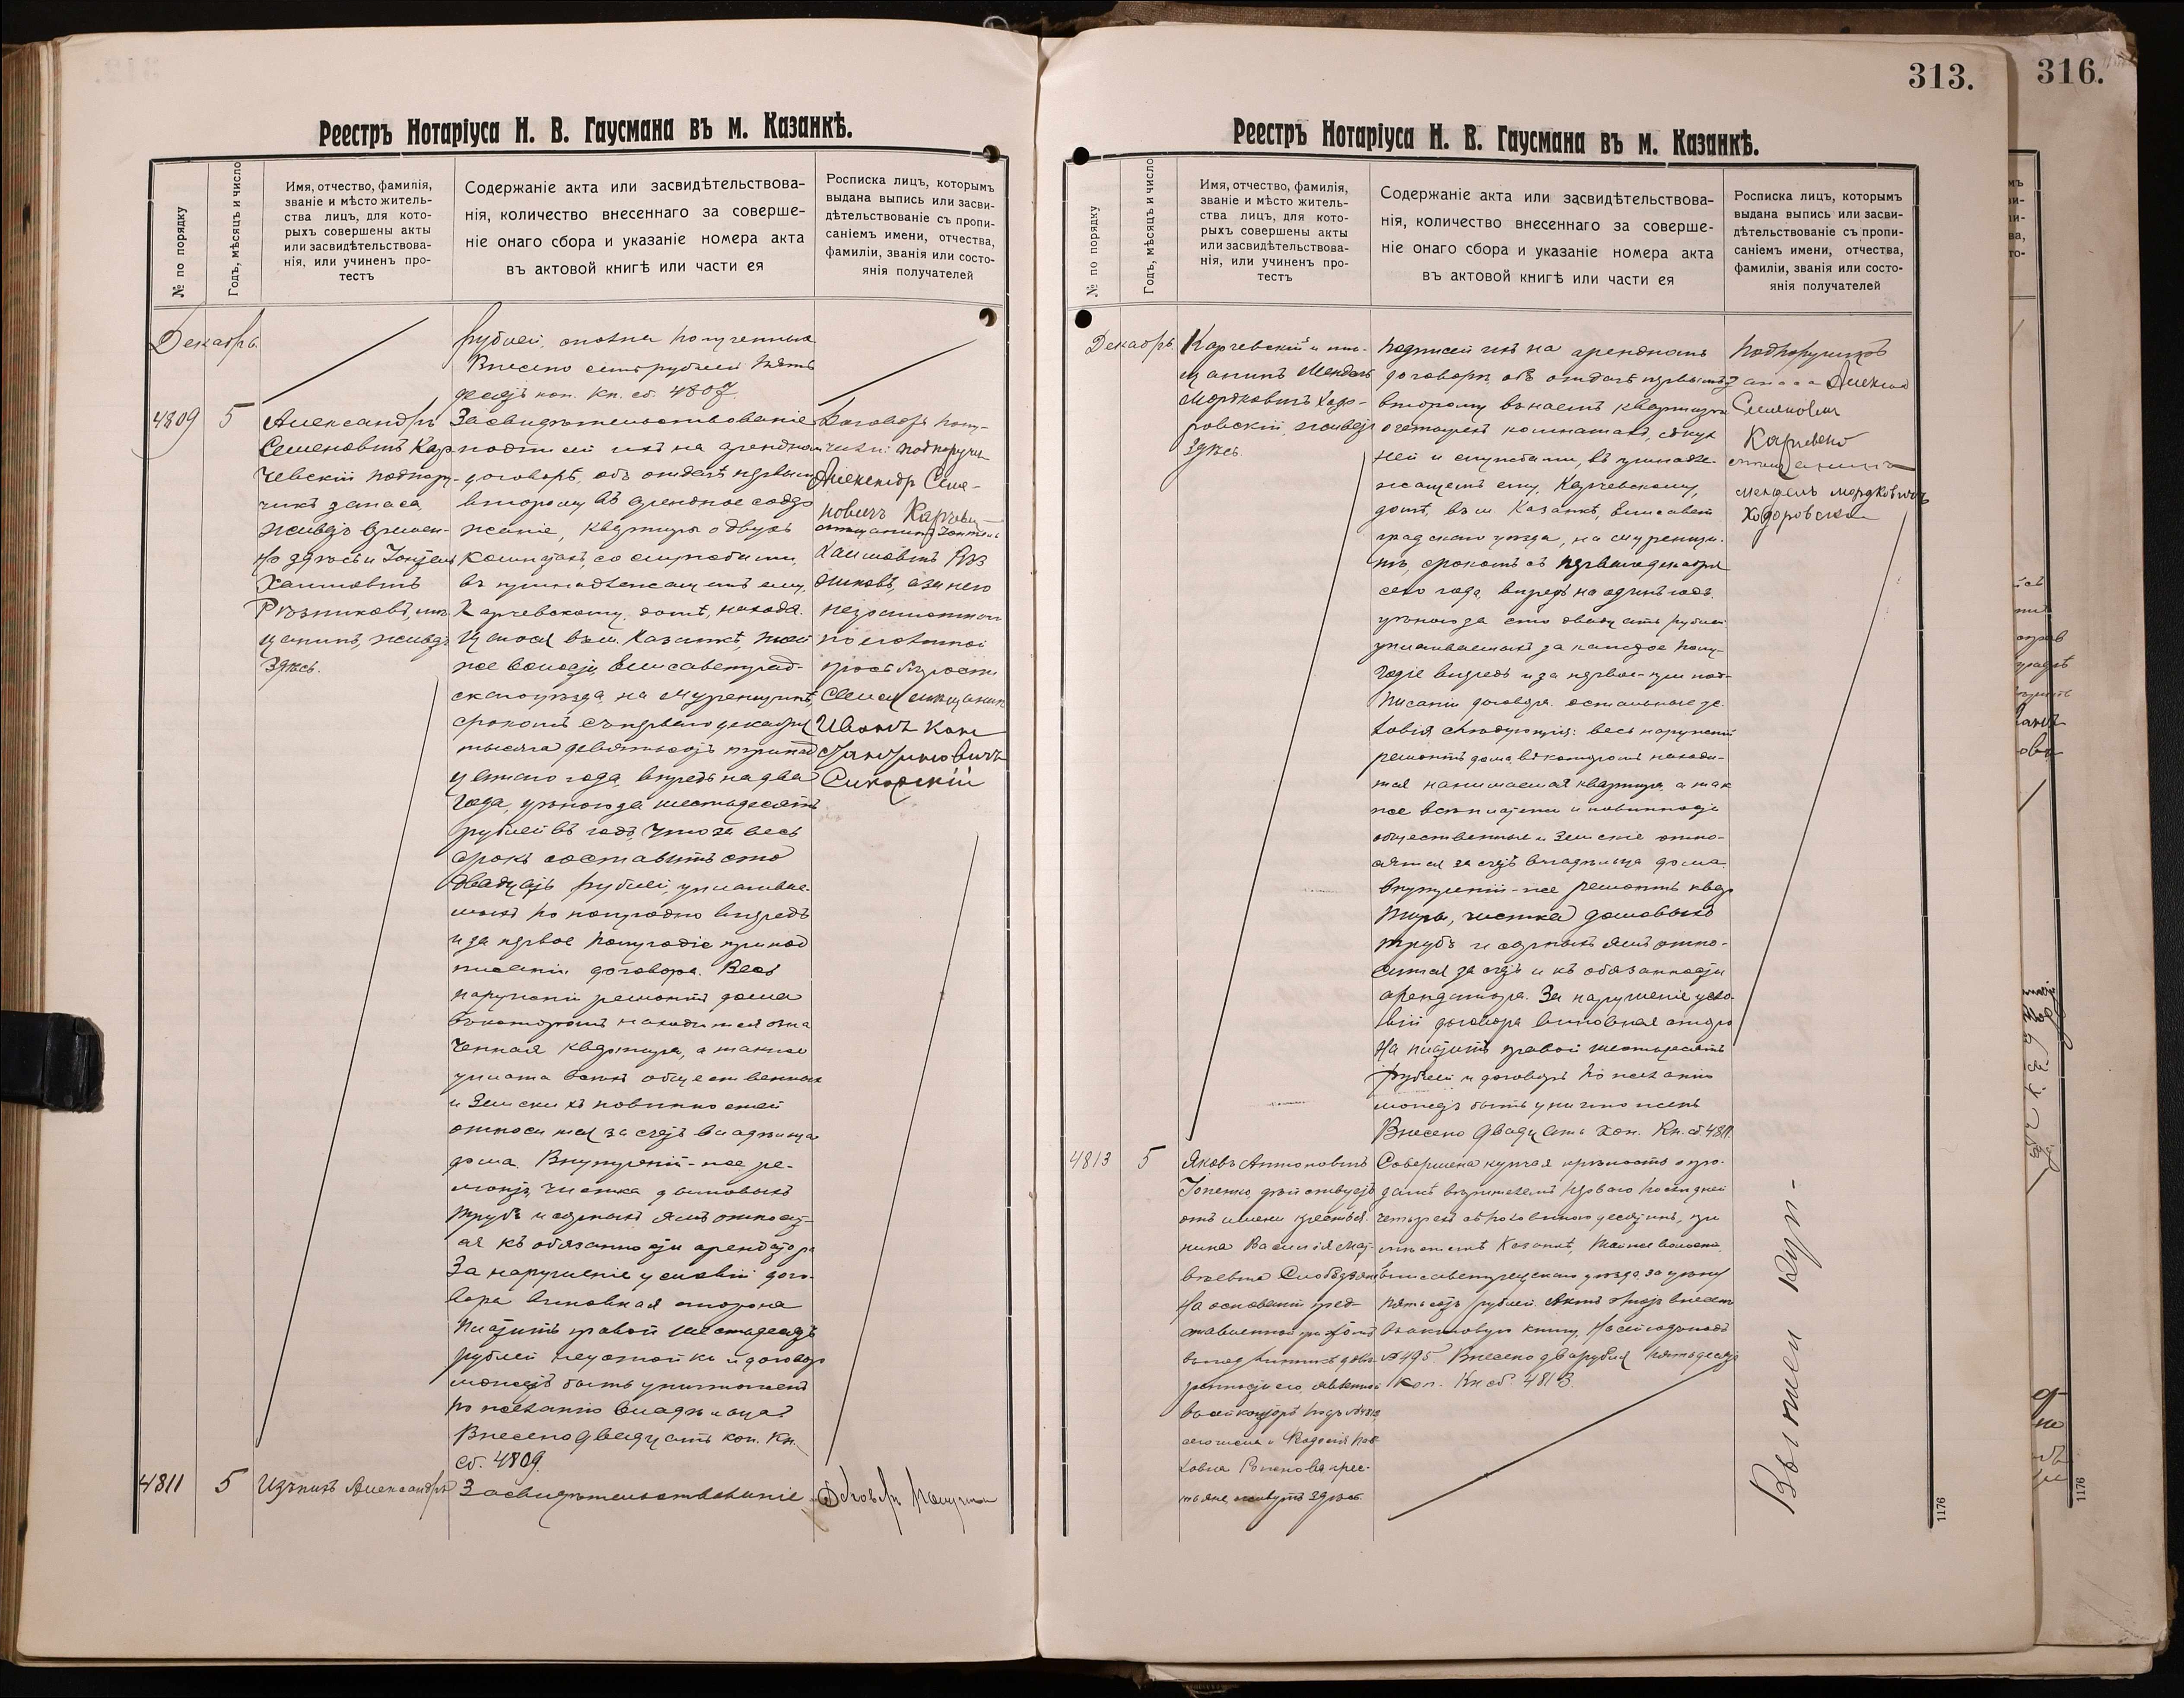 Реестръ Нотаріуса Н. В. Гаусмана въ м. Казанкѣ.
№ по порядку
Годъ, мѣсяцъ и число
Имя, отчество, фамилія,
званіе и мѣсто житель-
ства лицъ, для кото-
рыхъ совершены акты
или засвидѣтельствова-
нія, или учиненъ про-
тестъ
Содержаніе акта или засвидѣтельствова-
нія, количество внесеннаго за соверше-
ніе онаго сбора и указаніе номера акта
въ актовой книгѣ или части ея
Росписка лицъ, которымъ
выдана выпись или засви-
дѣтельствованіе съ пропи-
саніемъ имени, отчества,
фамиліи, званія или состо-
янія получателей
Декабрь.
рублей, сполна полученные
Внесено семь рублей пять
десятъ коп. Кн. сб. 4807.
4809
5
Александръ
Семеновичъ Кар
чевскій подпору-
чикъ запаса
живетъ времен-
но здѣсь и
Хаимовичъ
Рѣзниковъ, мѣ
щанинъ, живетъ
здѣсь.
Засвидѣтельствованіе
подписей ихъ на арендном
договорѣ, объ отдачѣ первым
второму въ арендное содер
жаніе, квартиры о двухъ
комнатахъ, со службами,
въ принадлежащемъ ему,
Карчевскому, домѣ, находя-
щагося въ м. Казанкѣ, той
же волости, Елисаветград-
скаго уѣзда, на
срокомъ съ перваго декабря
тысяча девятьсотъ тринад
цатаго года, впредь на два
года, цѣною за шестьдесятъ
рублей въ годъ, что за весь
срокъ составитъ сто
двадцать рублей, уплачивае-
мыхъ по полугодно впредь
и за первое полугодіе при под
писаніи договора. Весь
наружный ремонтъ дома
въ которомъ находится озна
ченная квартира, а также
уплата всѣхъ общественных
и земскихъ повинностей
относится за счетъ владѣльца
дома. Внутренній-же ре-
монтъ, чистка дымовыхъ
трубъ и сорныхъ ямъ относит-
ся къ обязанности арендатора
За нарушеніе условій дого-
вора виновная сторона
платитъ правой шестьдесятъ
рублей неустойки и договор
можетъ быть уничтоженъ
по желанію владѣльца.
Внесено двадцать коп. Кн.
сб. 4809.
Договоръ полу-
чили: подпоручи
Александр Семе-
новичъ Карчевс
мѣщанинъ
Хаимовичъ Рѣз
никовъ, а за него
неграмотнаго
по его личной
просьбѣ
мѣщанинъ
Иванъ Кон
стантиновичъ
Сикорскій
4811
5
Изъ нихъ Александръ
Засвидѣтельствованіе
Договоръ получили
313.
Реестръ Нотаріуса Н. В. Гаусмана въ м. Казанкѣ.
№ по порядку
Годъ, мѣсяцъ и число
Имя, отчество, фамилія,
званіе и мѣсто житель-
ства лицъ, для кото-
рыхъ совершены акты
или засвидѣтельствова-
нія, или учиненъ про-
тестъ
Содержаніе акта или засвидѣтельствова-
нія, количество внесеннаго за соверше-
ніе онаго сбора и указаніе номера акта
въ актовой книгѣ или части ея
Росписка лицъ, которымъ
выдана выпись или засви-
дѣтельствованіе съ пропи-
саніемъ имени, отчества,
фамиліи, званія или состо-
янія получателей
Декабрь.
Карчевскій и мѣ-
щанинъ Мендель
Мордковичъ Ходо-
ровскій, живетъ
здѣсь.
подписей ихъ на арендномъ
договорѣ, объ отдачѣ первымъ
второму въ наемъ квартиры
о четырехъ комнатахъ, съ кух
ней и службами, въ принадле-
жащемъ ему, Карчевскому,
домѣ, въ м. Казанкѣ, Елисавет
градскаго уѣзда, на
срокомъ съ перваго декабря
сего года, впредь на одинъ годъ,
цѣною за сто двадцать рублей
уплачиваемыхъ за каждое полу-
годіе впредь и за первое-при под-
писаніи договора. Остальныя ус-
ловія слѣдующія: весь наружный
ремонтъ дома, въ которомъ находи-
тся нанимаемая квартира, а так
же всѣ платежи и повинности
общественные и земскіе отно-
сятся за счетъ владѣльца дома.
Внутренній-же ремонтъ квар
тиры, чистка дымовыхъ
трубъ и сорныхъ ямъ отно-
сится за счетъ и къ обязанности
арендатора. За нарушеніе усло-
вій договора виновная сторо
на платитъ правой шестьдесятъ
рублей и договоръ по желанію
можетъ быть уничтоженъ
Внесено двадцать коп. Кн. сб. 4811.
Подпоручикъ
запаса Александ
Семенович
Карчевск
мѣщанинъ
мендель мордковичъ
Ходоровски
4813
5
Яковъ Антоновичъ
дѣйствуетъ
отъ имени крестья-
нина Василія Мат-
вѣевича
На основаніи пред-
ставленной при семъ
въ подлинникѣ довѣ
ренности его, явленной
въ сей конторѣ подъ
его имени и Ѳедосія Пав
ловна крес-
тьяне, живутъ здѣсь.
Совершена купчая крѣпость о про-
дажѣ вторымъ
четырехъ съ половиною десятинъ, при
мѣстечкѣ Казанкѣ, той же волости,
Елисаветградскаго уѣзда, за цѣну
пятьсотъ рублей. Актъ этотъ внесенъ
въ актовую книгу, на сей годъ подъ
№ 495. Внесено два рубля пятьдесятъ
коп. Кн. сб. 4813.
Выписи куп-
1176
316.
1176